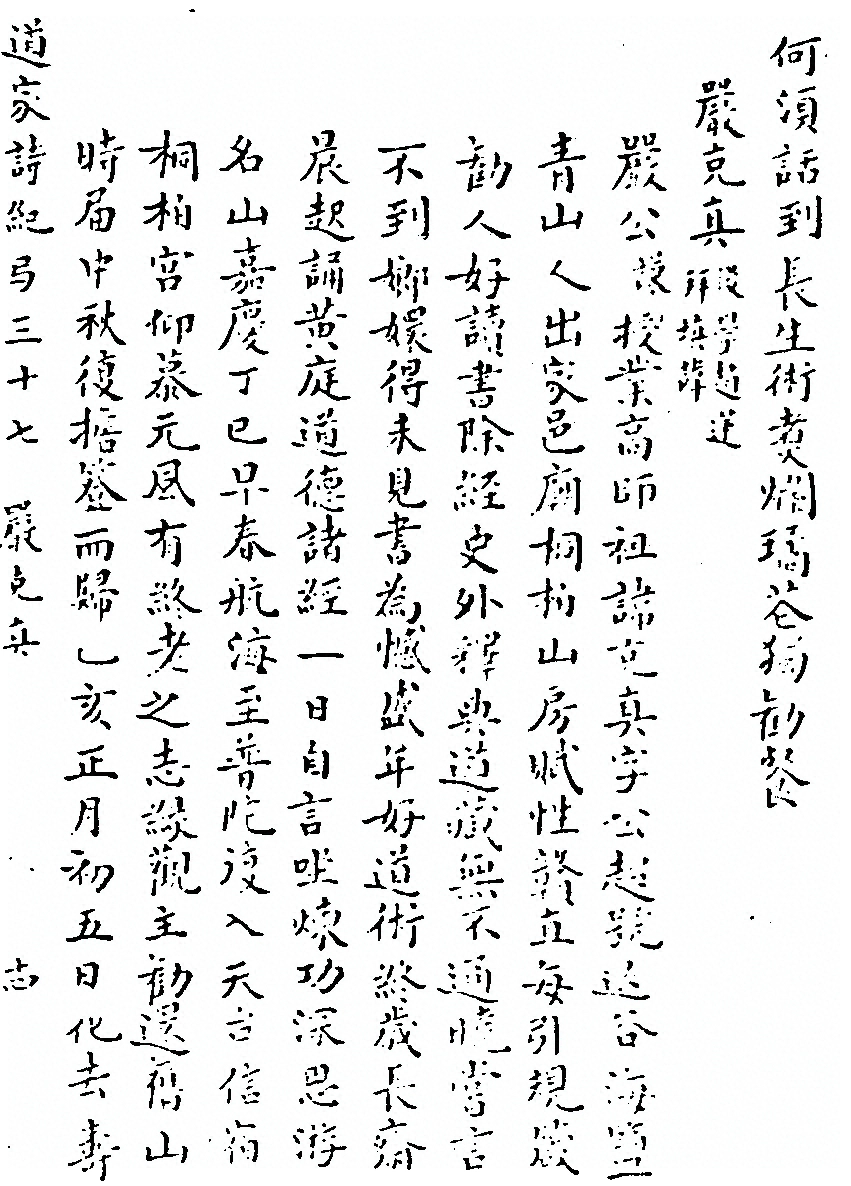 何須話到長生術煑爛璚芝獨勸餐
嚴克真
嚴公諱授業高師祖諱克真字公起號逃谷海鹽
青山人出家邑廟桐柏山房賦性聾直每引規箴
勸人好讀書除經史外釋典道藏無不通曉嘗言
不到嫏嬛得未見書為憾盛年好道術終歲長齋
晨起誦黃庭道德諸經一日自言坐煉功深思游
名山嘉慶丁巳早春航海至普陀復入天台信宿
桐柏宮仰慕元風有終老之志緣觀主勸還舊山
時届中秋復擔簦而歸乙亥正月初五日化去壽
道家詩紀弓三十七 嚴克真 志